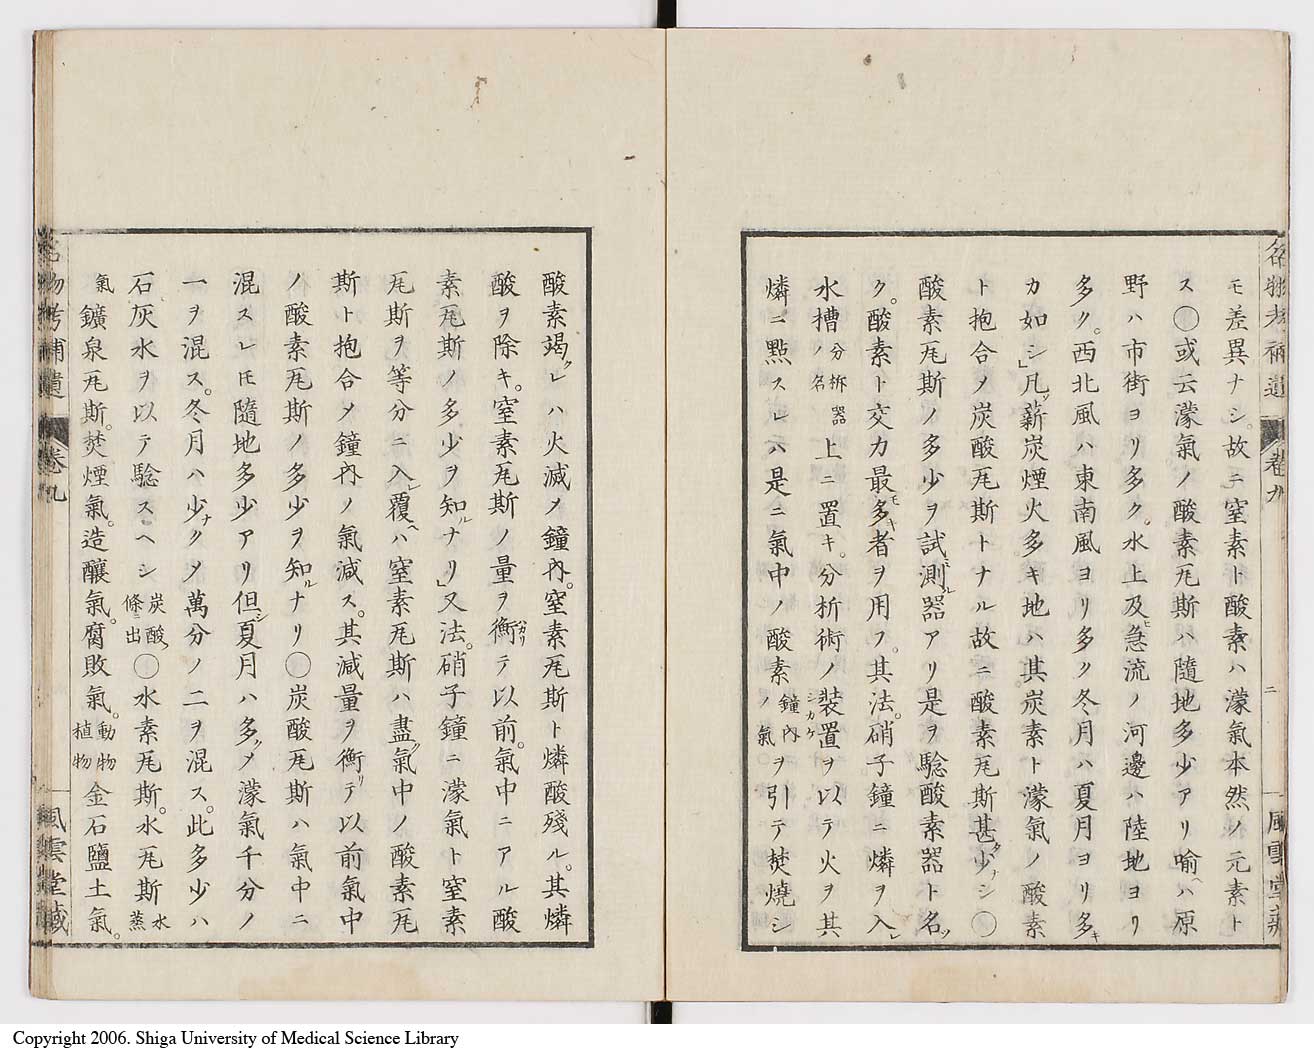 モ差異ナシ。故ニ窒素ト酸素ハ濛氣本然ノ元素ト
ス◯或云濛氣ノ酸素瓦斯ハ隨地多少アリ喻ヘハ原
野ハ市街ヨリ多ク。水上及ヒ急流ノ河邊ハ陸地ヨリ
多ク。西北風ハ東南風ヨリ多ク冬月ハ夏月ヨリ多キ
カ如シ」凡ソ薪炭煙火多キ地ハ其炭素ト濛氣ノ酸素
ト抱合ノ炭酸瓦斯トナル故ニ酸素瓦斯甚タ少ナシ◯
酸素瓦斯ノ多少ヲ試測スル器アリ是ヲ驗酸素器ト名ツ
ク。酸素ト交力最モ多キ者ヲ用フ。其法。硝子鐘ニ燐ヲ入レ
水槽ノ分析器名上ニ置キ。分析術ノ装置シカケヲ以テ火ヲ其
燐ニ點スレハ是ニ氣中ノ酸素鐘內ノ氣。ヲ引テ焚燒シ
酸素竭クレハ火滅メ鐘內。窒素瓦斯ト燐酸殘ル。其燐
酸ヲ除キ。窒素瓦斯ノ量ヲ衡ハカリテ以前。氣中ニアル酸
素瓦斯ノ多少ヲ知ルナリ」又法。硝子鐘ニ濛氣ト窒素
瓦斯ヲ等分ニ入レ覆ヘハ窒素瓦斯ハ盡ク氣中ノ酸素瓦
斯ト抱合メ鐘內ノ氣減ス。其減量ヲ衡リテ以前氣中
ノ酸素瓦斯ノ多少ヲ知ルナリ◯炭酸瓦斯ハ氣中ニ
混スレ𪜈隨地多少アリ但シ夏月ハ多クメ濛氣千分ノ
一ヲ混ス。冬月ハ少ナクメ萬分ノ二ヲ混ス。此多少ハ
石灰水ヲ以テ驗スヘシ炭酸ノ條ニ出◯水素瓦斯。水瓦斯水蒸
氣鑛泉瓦斯。焚煙氣。造釀氣。腐敗氣。動物植物金石鹽土氣。
名物考補遺
卷九
二
風雲堂藏
名物考補遺
卷九
風雲堂藏
Copyright 2006. Shiga University of Medical Science Library